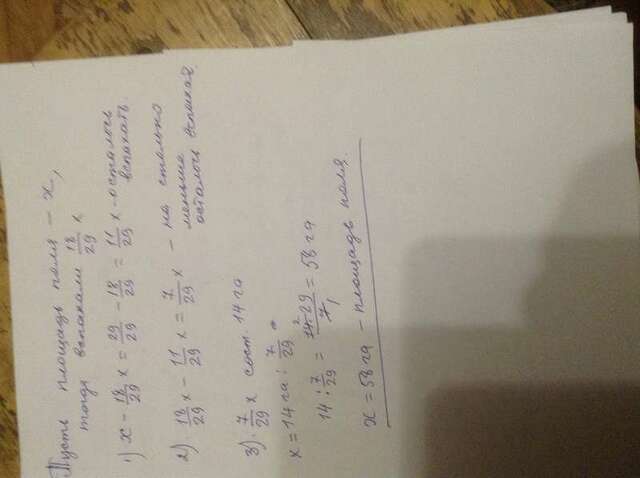 Пусть площадь поля – x,
тогда вспахали 18/29 x
1) x - 18/29 x = 29/29 - 18/29 = 11/29 x - осталось
вспахать.
2) 18/29 x - 11/29 x = 7/29 x - на столько
меньше
осталось вспахат.
3). 7/29 x сост. 14 га
x = 14 га : 7/29 =
14 : 7/29 = 14² · 29 / 7₁ = 58 га
x = 58 га – площадь поля.